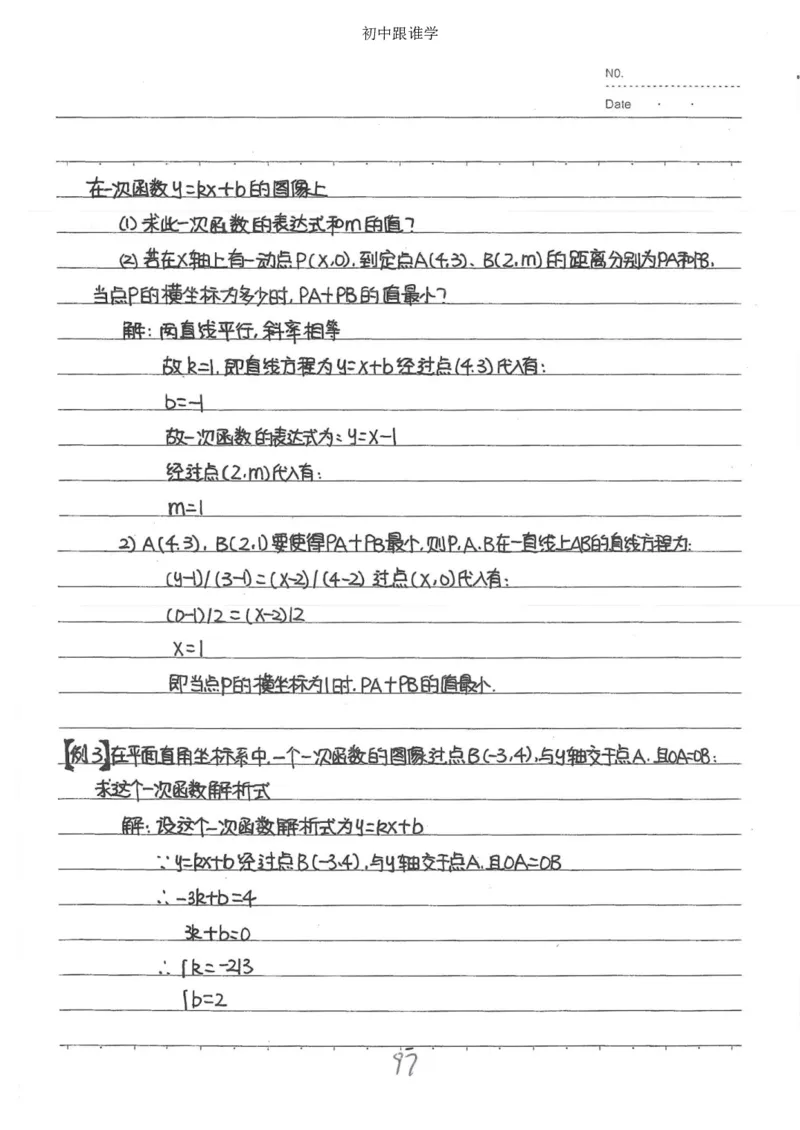 初中跟谁学
NO.
Date
在一次函数y=kx+b的图像上
(1) 求此一次函数的表达式和m的值?
(2) 若在X轴上有一动点P(X,0),到定点A(4,3)、B(2,m)的距离分别为PA和PB,
当点P的横坐标为多少时,PA+PB的值最小?
解:两直线平行,斜率相等
故k=1,即直线方程为y=x+b经过点(4,3)代入有:
b=-1
故一次函数的表达式为:y=x-1
经过点(2,m)代入有:
m=1
2) A(4,3), B(2,1)要使得PA+PB最小,则P,A,B在一直线上AB的直线方程为:
(y-1)/(3-1)=(x-2)/(4-2) 过点(x,0)代入有:
(0-1)/2=(x-2)/2
x=1
即当点P的横坐标为1时,PA+PB的值最小.
【例3】在平面直角坐标系中,一个一次函数的图像过点B(-3,4),与y轴交于点A,且OA=OB:
求这个一次函数解析式
解:设这个一次函数解析式为y=kx+b
∵y=kx+b经过点B(-3,4),与y轴交于点A,且OA=OB
∴-3k+b=4
3k+b=0
∴{k=-2/3
{b=2
97